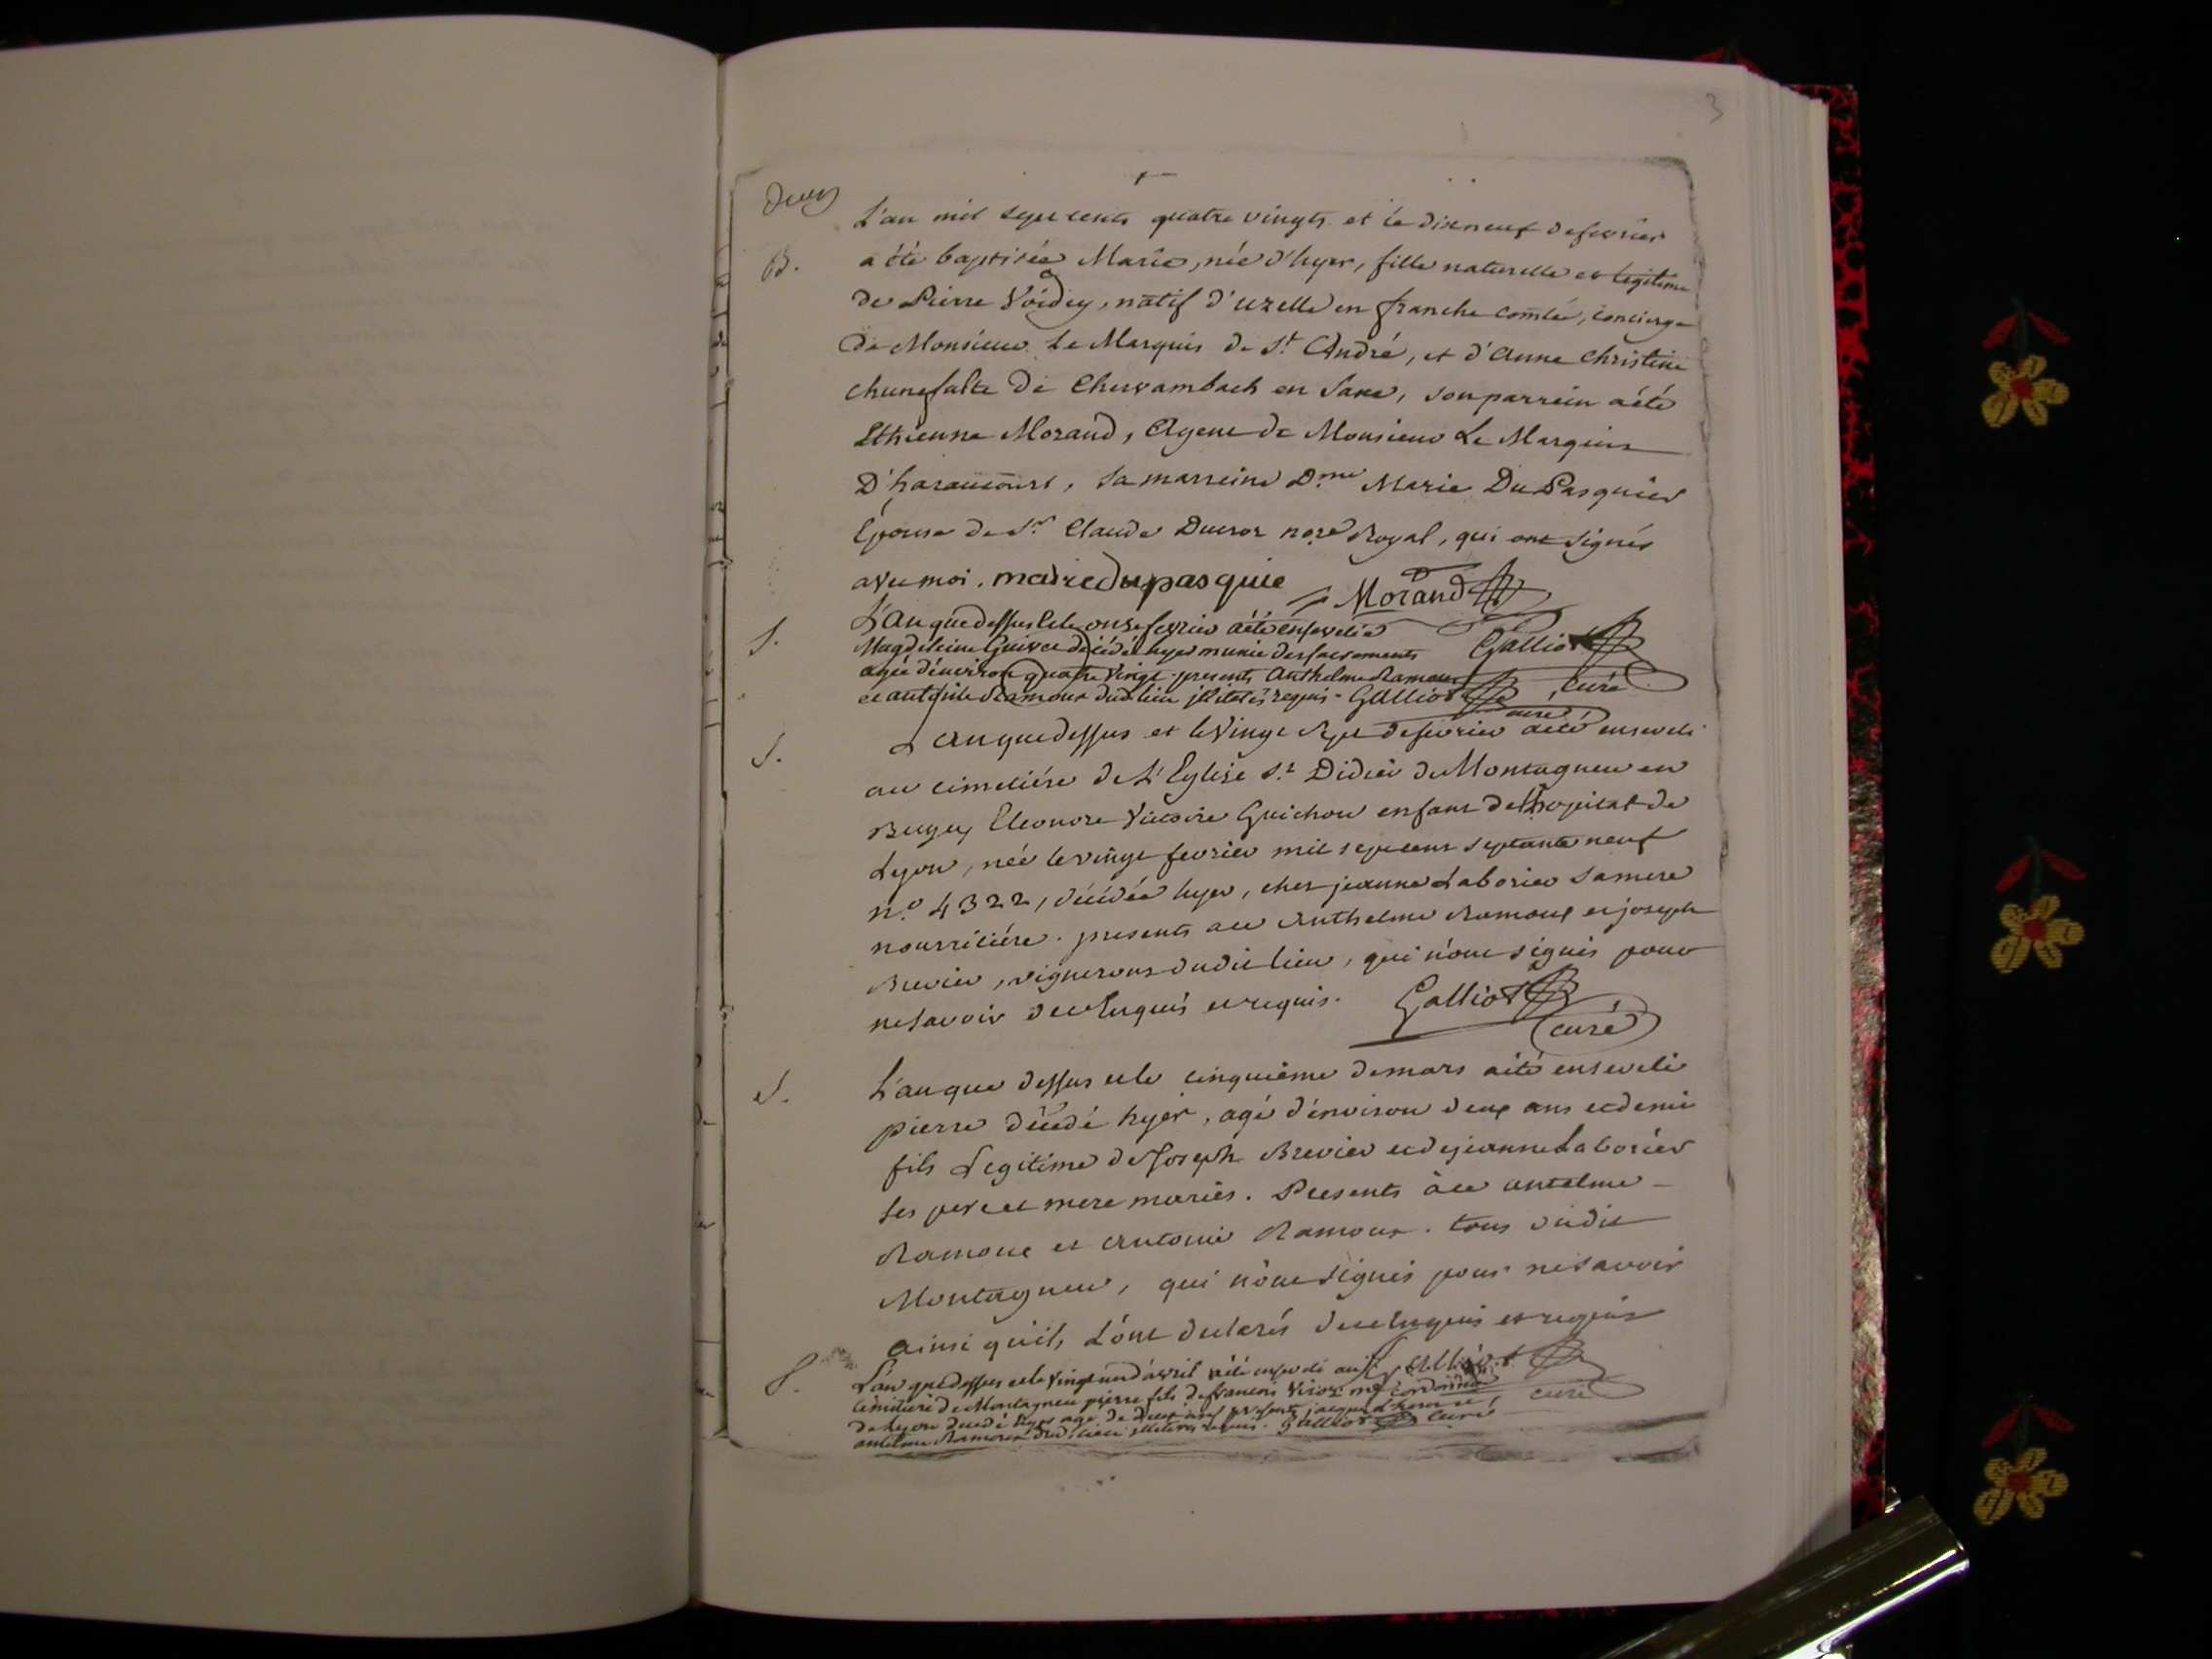 3
deux
L'an mil sept cents quatre vingts et le dixneuf de fevrier
B.
a été baptisée Marie, née d'hyer, fille naturelle et legitime
de Pierre Voidey, natif d'uzelle en franche comtée, concierge
de Monsieur Le Marquis de St André, et d'Anne Christine
en Saxe, son parrein a été
Ethienne Morand, Agent de Monsieur Le Marquis
D'haraucourt, sa marreine Dme Marie Du Pasquier
Epouse de Sr Claude Ducroz nore Royal, qui ont signés
avec moi. marie dupasquie Morand
S.
L'an que dessus et le onze fevrier a été ensevelie
Magdeleine décédée hyer munie des sacrements Galliot
agée d'environ quatre vingt. presents Anthelme Ramoux curé
et antoine Ramoux dud. lieu illiterés requis. Galliot curé
S.
L'an que dessus et le vingt sept de fevrier a été enseveli
au cimetiére de L'Eglise St Didier de Montagneu en
Bugey Eleonore Victoire Guichon enfant de L'hopital de
Lyon, née le vingt fevrier mil sept cent septante neuf
no. 4322, décédée hyer, chez jeanne Laborier sa mere
nourriciére. presents a ce Anthelme Ramoux et joseph
Brevier, vignerons dudit lieu, qui n'ont signés pour
ne savoir de ce enquis et requis. Galliot
curé
S.
L'an que dessus et le cinquième de mars a été enseveli
pierre décédé hyér, agé d'environ deux ans et demi
fils Legitime de Joseph Brevier et de jeanne Laborier
ses pere et mere mariés. Presents à ce antelme
Ramoux et Antoine Ramoux. tous dudit
Montagneu, qui n'ont signés pour ne savoir
ainsi qu'ils L'ont declarés de ce enquis et requis
S.
L'an que dessus et le vingt un d'avril a été enseveli au Galliot
cimetiére de Montagneu pierre fils de francois me cordonnier curé
de Lyon decedé hyer agé de presents jacques
antelme Ramoux dud. lieu illiterés requis. Galliot curé